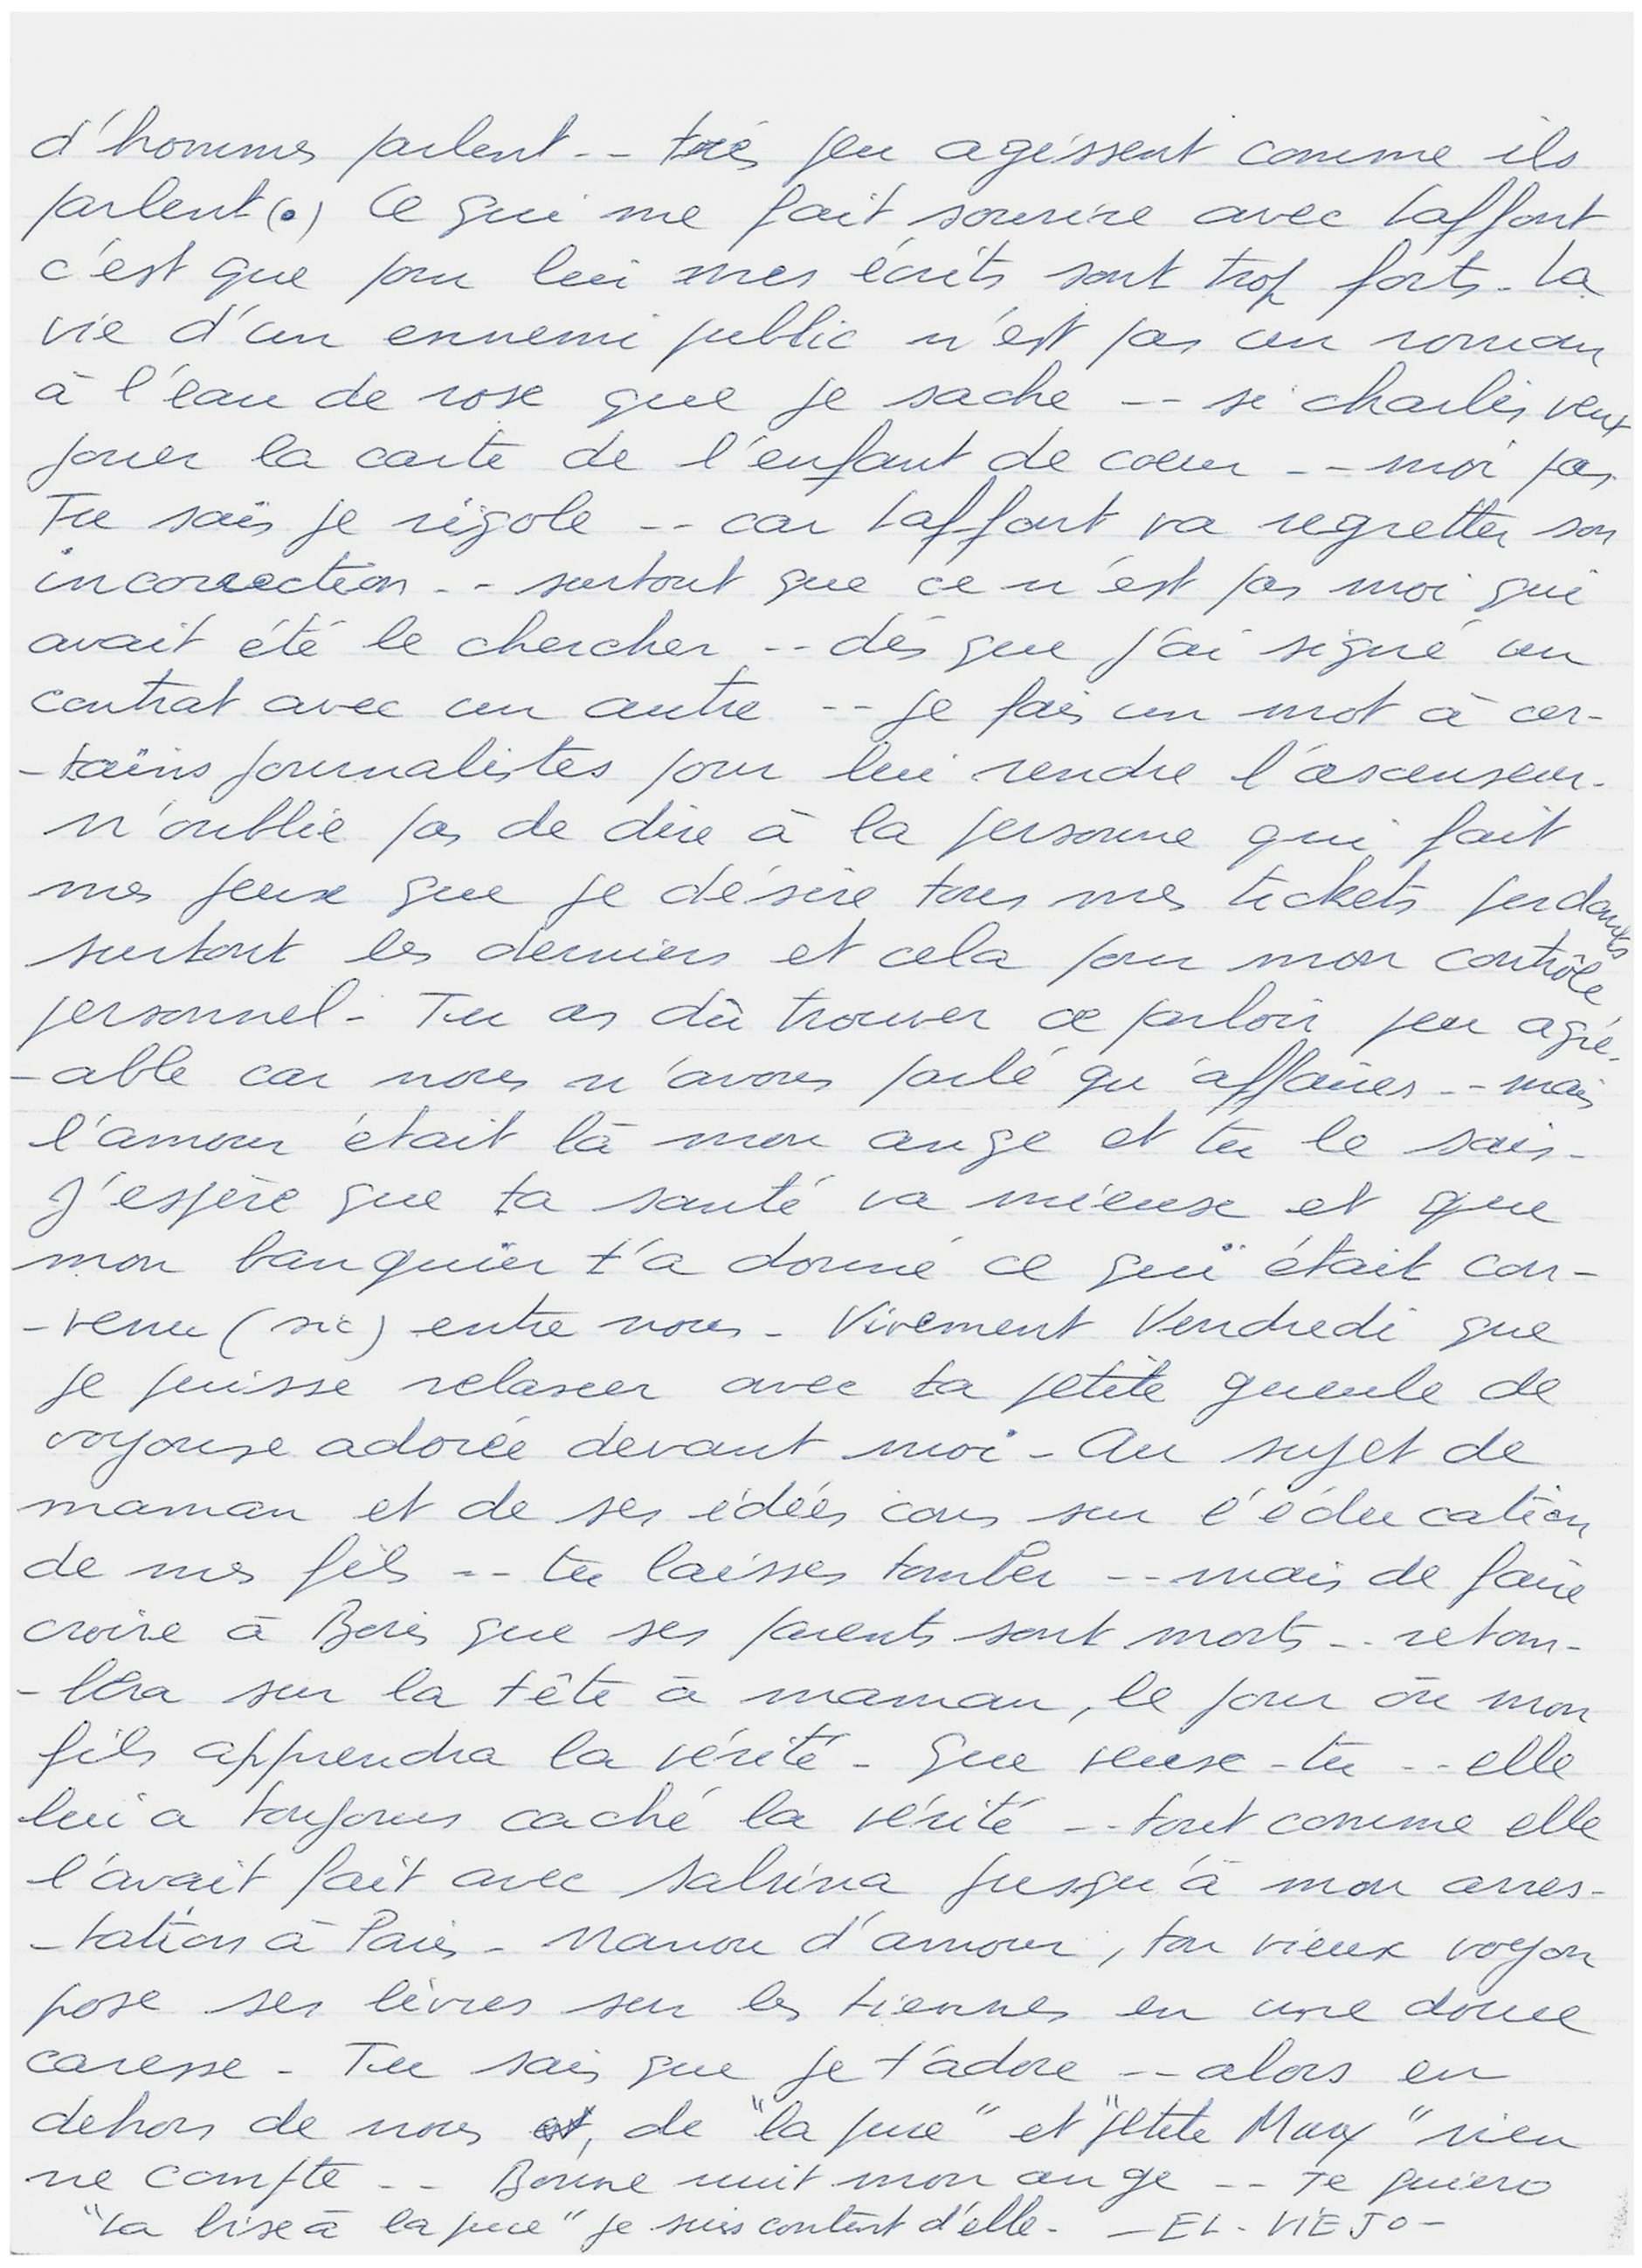 d'hommes parlent -- très peu agissent comme ils
parlent (.) Ce qui me fait sourire avec Laffont
c'est que pour lui mes écrits sont trop forts. La
vie d'un ennemi public n'est pas un roman
à l'eau de rose que je sache -- si charlis veux
jouer la carte de l'enfant de cœur -- moi pas
Tu sais je rigole -- car Laffont va regretter son
incorrection -- surtout que ce n'est pas moi qui
avait été le chercher -- dès que j'ai signé un
contrat avec un autre -- je fais un mot à cer-
-tains journalistes pour lui rendre l'ascenseur.
N'oublie pas de dire à la personne qui fait
mes jeux que je désire tous mes tickets perdants
surtout les derniers et cela pour mon contrôle
personnel - Tu as dû trouver ce parloir peu agré-
-able car nous n'avons parlé qu'affaires -- mais
l'amour était là mon ange et tu le sais -
J'espère que ta santé va mieux et que
mon banquier t'a donné ce qui était con-
-venu (sic) entre nous - Vivement Vendredi que
je puisse relaxer avec ta petite gueule de
voyouse adorée devant moi - Au sujet de
maman et de ses idées cons sur l'éducation
de mes fils -- tu laisses tomber -- mais de faire
croire à Boris que ses parents sont morts -- retom-
-bera sur la tête à maman, le jour où mon
fils apprendra la vérité - Que veux-tu -- elle
lui a toujours caché la vérité -- tout comme elle
l'avait fait avec Sabrina jusqu'à mon arres-
-tation à Paris - Nanou d'amour, ton vieux voyou
pose ses lèvres sur les tiennes en une douce
caresse - Tu sais que je t'adore -- alors en
dehors de nous, de "la puce" et "petite Mary" rien
ne compte -- Bonne nuit mon ange -- Te quiero
"La bise à la puce" je suis content d'elle - - EL - VIEJO -